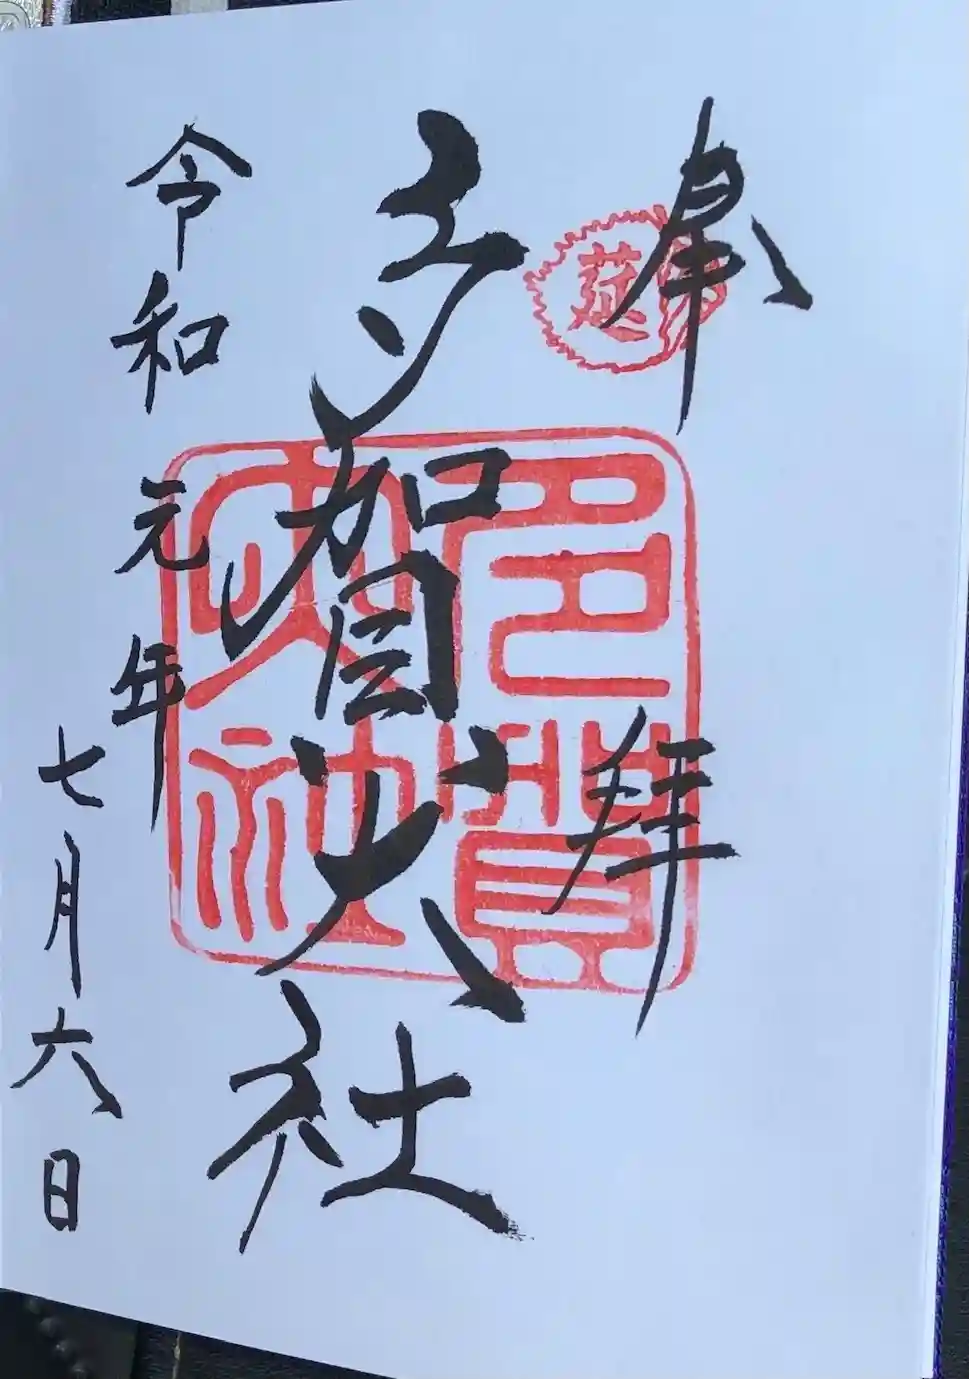 奉拝
莚
多賀大社
多賀大社
令和元年七月六日